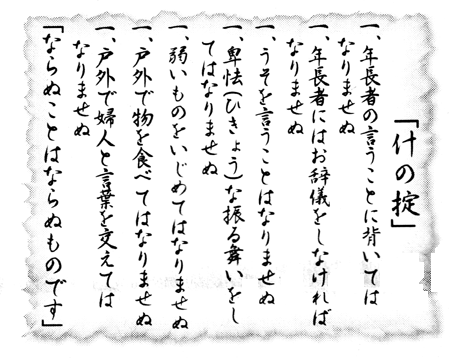 「什の掟」
一、年長者の言うことに背いては
なりませぬ
一、年長者にはお辞儀をしなければ
なりませぬ
一、うそを言うことはなりませぬ
一、卑怯(ひきょう)な振る舞いをし
てはなりませぬ
一、弱いものをいじめてはなりませぬ
一、戸外で物を食べてはなりませぬ
一、戸外で婦人と言葉を交えては
なりませぬ
「ならぬことはならぬものです」